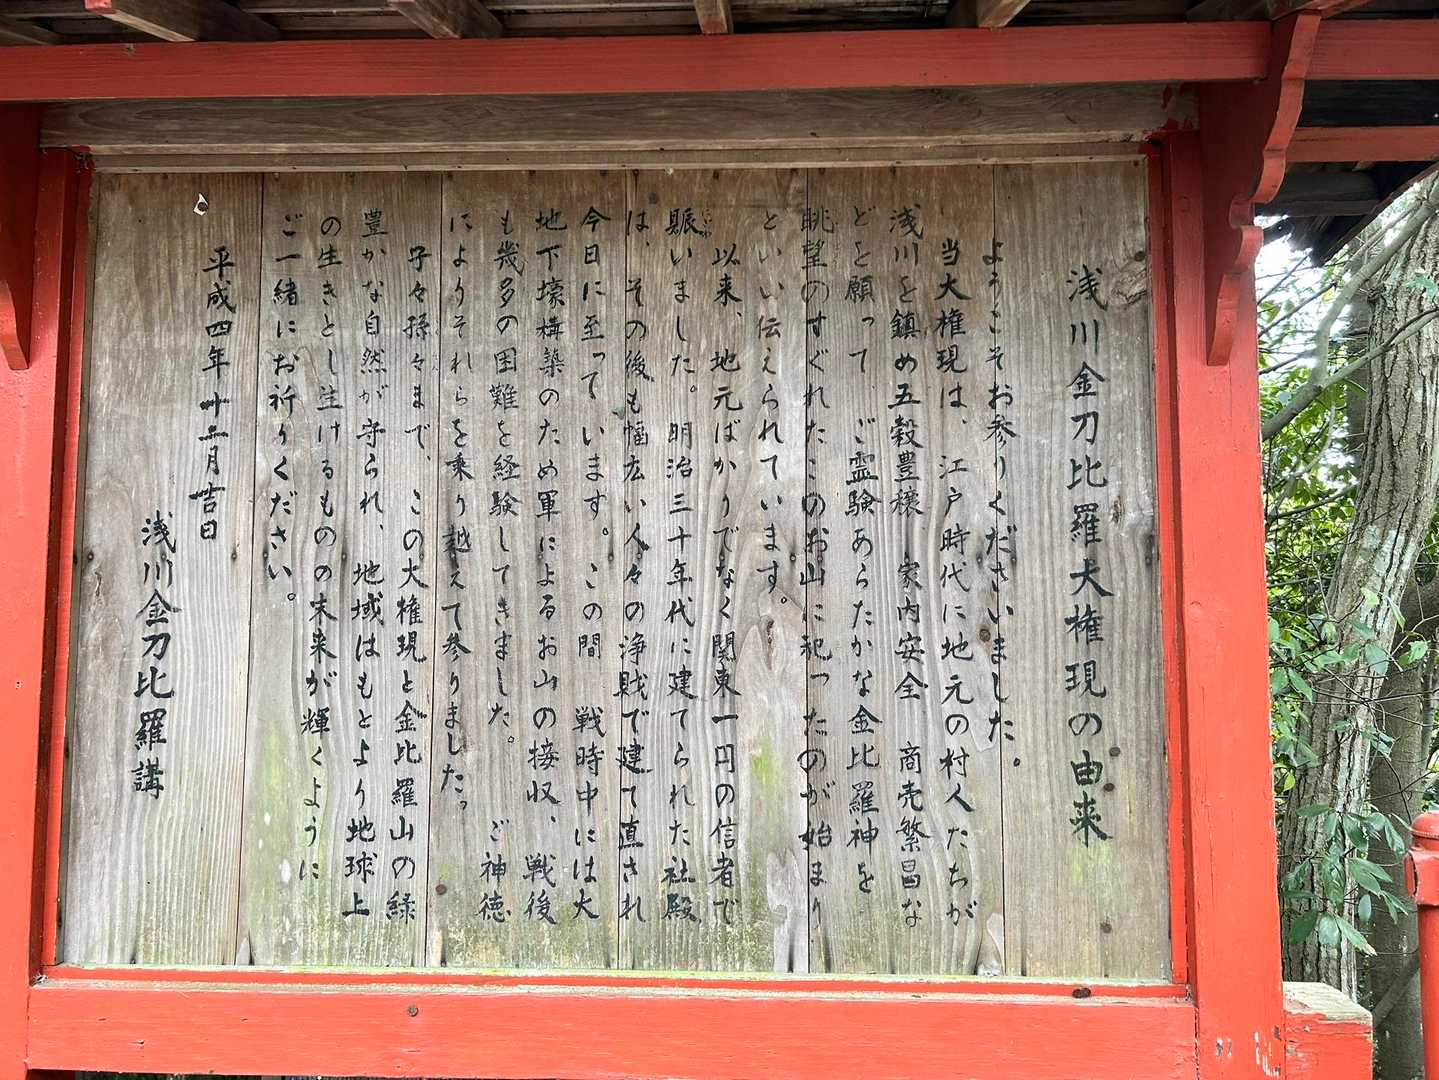 浅川金刀比羅大権現の由来
ようこそお参りくださいました。
当大権現は、江戸時代に地元の村人たちが
浅川を鎮め五穀豊穣 家内安全 商売繁昌な
どを願って、ご霊験あらたかな金比羅神を
眺望のすぐれたこのお山に祀ったのが始まり
といい伝えられています。
以来、地元ばかりでなく関東一円の信者で
賑いました。明治三十年代に建てられた社殿
は、その後も幅広い人々の浄財で建て直され
今日に至っています。この間 戦時中には大
地下壕構築のため軍によるお山の接収、戦後
も幾多の困難を経験してきました。 ご神徳
によりそれらを乗り越えて参りました。
子々孫々まで、この大権現と金比羅山の緑
豊かな自然が守られ、地域はもとより地球上
の生きとし生けるものの末来が輝くように
ご一緒にお祈りください。
平成四年十二月吉日
浅川金刀比羅講